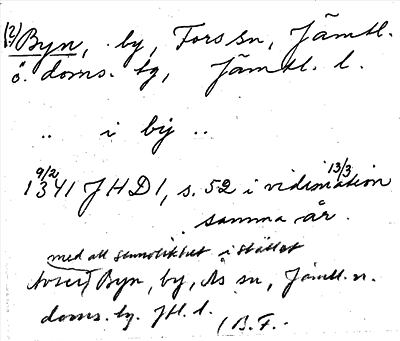 (2) Byn, by, Fors sn, Jämtl.
ö. doms. tg, Jämtl. l.
.. i bij ..
9/2 13/3
1341 JHD1, s. 52 i vidimation
samma år.
med all sannolikhet i stället
Byn, by, Ås sn, Jämtl. n.
doms. tg. Jtl. l.
(B.F..